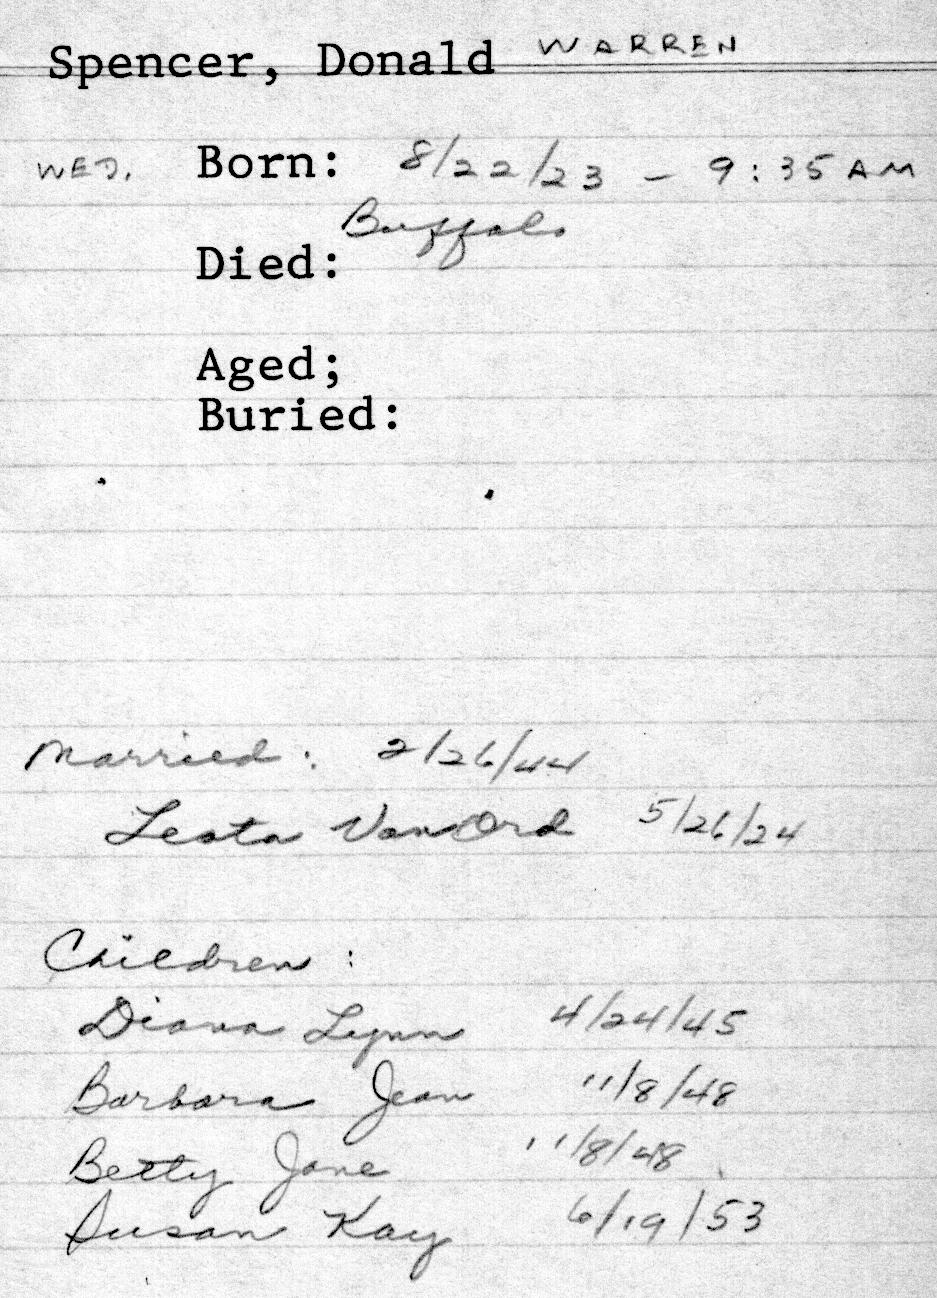 Spencer, Donald WARREN
WED. Born: 8/22/23 - 9:35 AM
Buffalo
Died:
Aged;
Buried:
Married: 2/26/44
Leata VanOrd 5/26/24
Children:
Diana Lynn 4/24/45
Barbara Jean 11/8/48
Betty Jane 11/8/48
Susan Kay 6/19/53